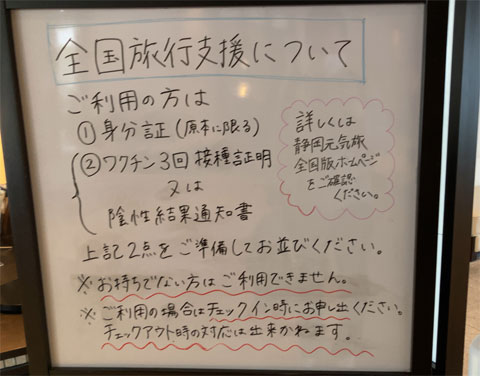 全国旅行支援について
ご利用の方は
① 身分証(原本に限る)
② ワクチン3回接種証明
又は
陰性結果通知書
詳しくは
静岡元気旅
全国版ホームページ
をご確認
ください。
上記2点をご準備してお並びください。
※お持ちでない方はご利用できません。
※ご利用の場合はチェックイン時にお申し出ください。
チェックアウト時の対応は出来かねます。